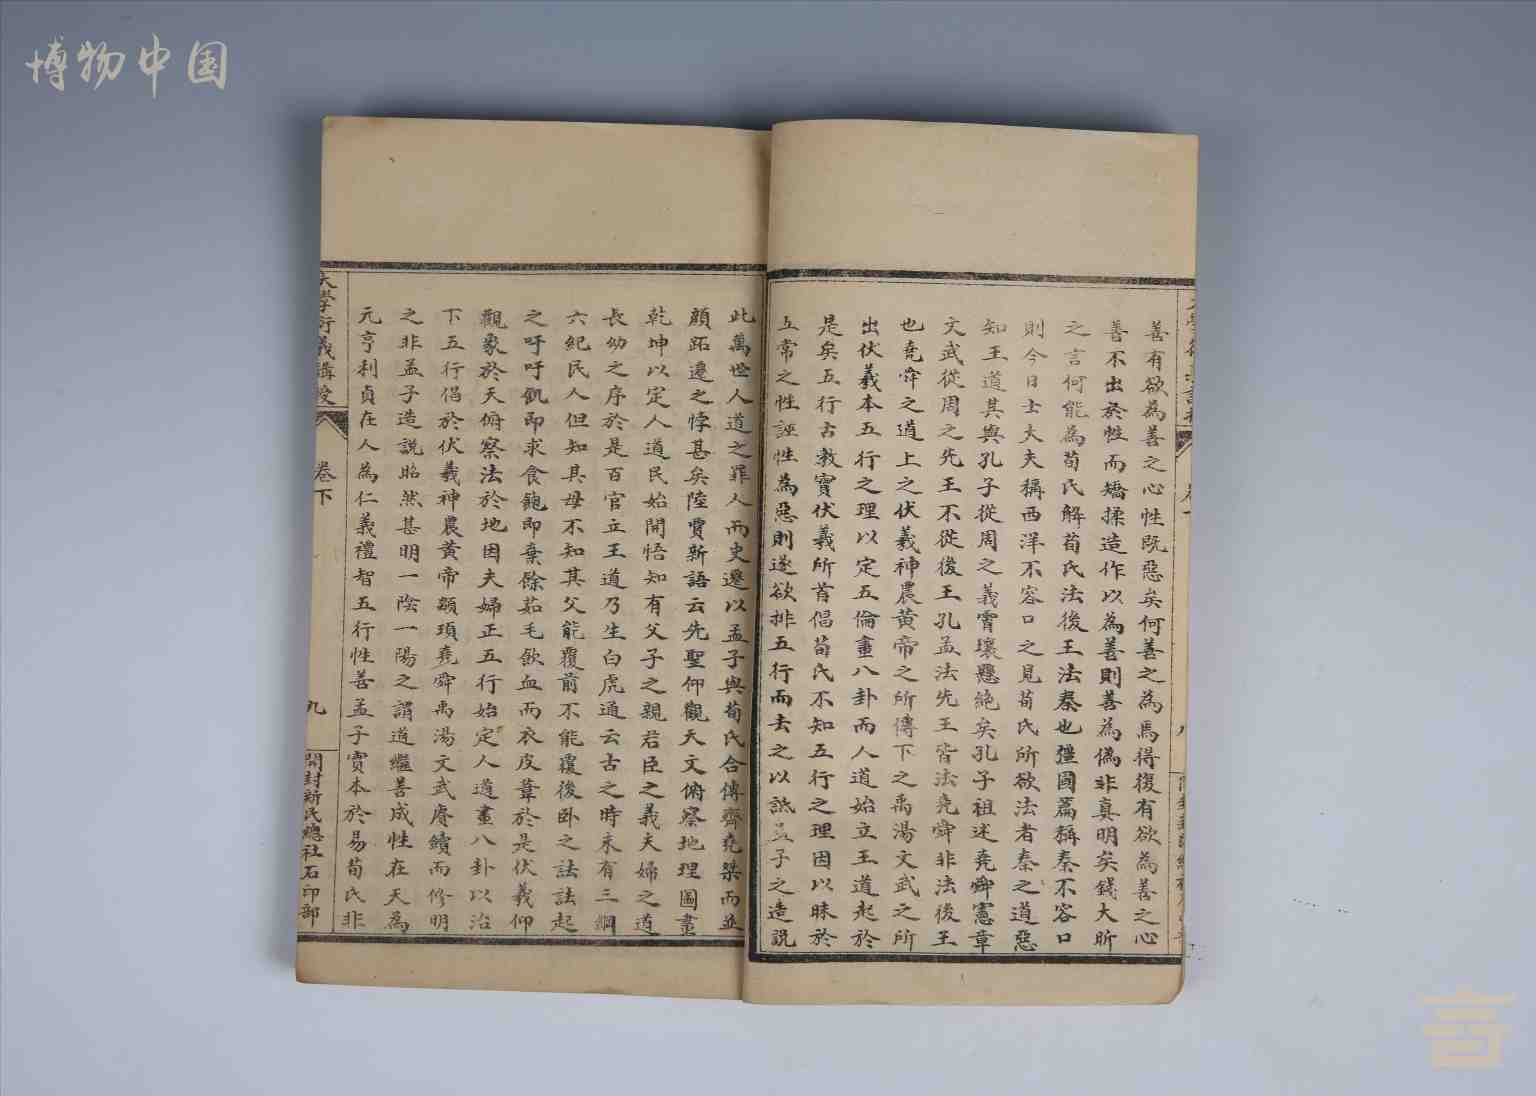 博物中国
善有欲為善之心性既惡矣何善之為焉得復有欲為善之心
善不出於性而矯揉造作以為善則善為偽非真明矣錢大昕
之言何能為荀氏解荀氏法後王法秦也彊國篇稱秦不容口
則今日士大夫稱西洋不容口之見荀氏所欲法者秦之道惡
知王道其與孔子從周之義霄壤懸絶矣孔子祖述堯舜憲章
文武從周之先王不從後王孔孟法先王皆法堯舜非法後王
也堯舜之道上之伏羲神農黃帝之所傳下之禹湯文武之所
出伏羲本五行之理以定五倫畫八卦而人道始立王道起於
是矣五行古教實伏羲所首倡荀氏不知五行之理因以昧於
五常之性誣性為惡則遂欲排五行而去之以詆孟子之造說
此萬世人道之罪人而史遷以孟子與荀氏合傳齊堯桀而並
顏跖遷之悖甚矣陸賈新語云先聖仰觀天文俯察地理圖畫
乾坤以定人道民始開悟知有父子之親君臣之義夫婦之道
長幼之序於是百官立王道乃生白虎通云古之時未有三綱
六紀民人但知其母不知其父能覆前不能覆後卧之詓詓起
之吁吁飢即求食飽即棄餘茹毛飲血而衣皮葦於是伏羲仰
觀象於天俯察法於地因夫婦正五行始定人道畫八卦以治
下五行倡於伏羲神農黃帝顓頊堯舜禹湯文武賡續而修明
之非孟子造說昭然甚明一陰一陽之謂道繼善成性在天為
元亨利貞在人為仁義禮智五行性善孟子實本於易荀氏非
大學衍義講授
卷下
九
開封新民總社石印部